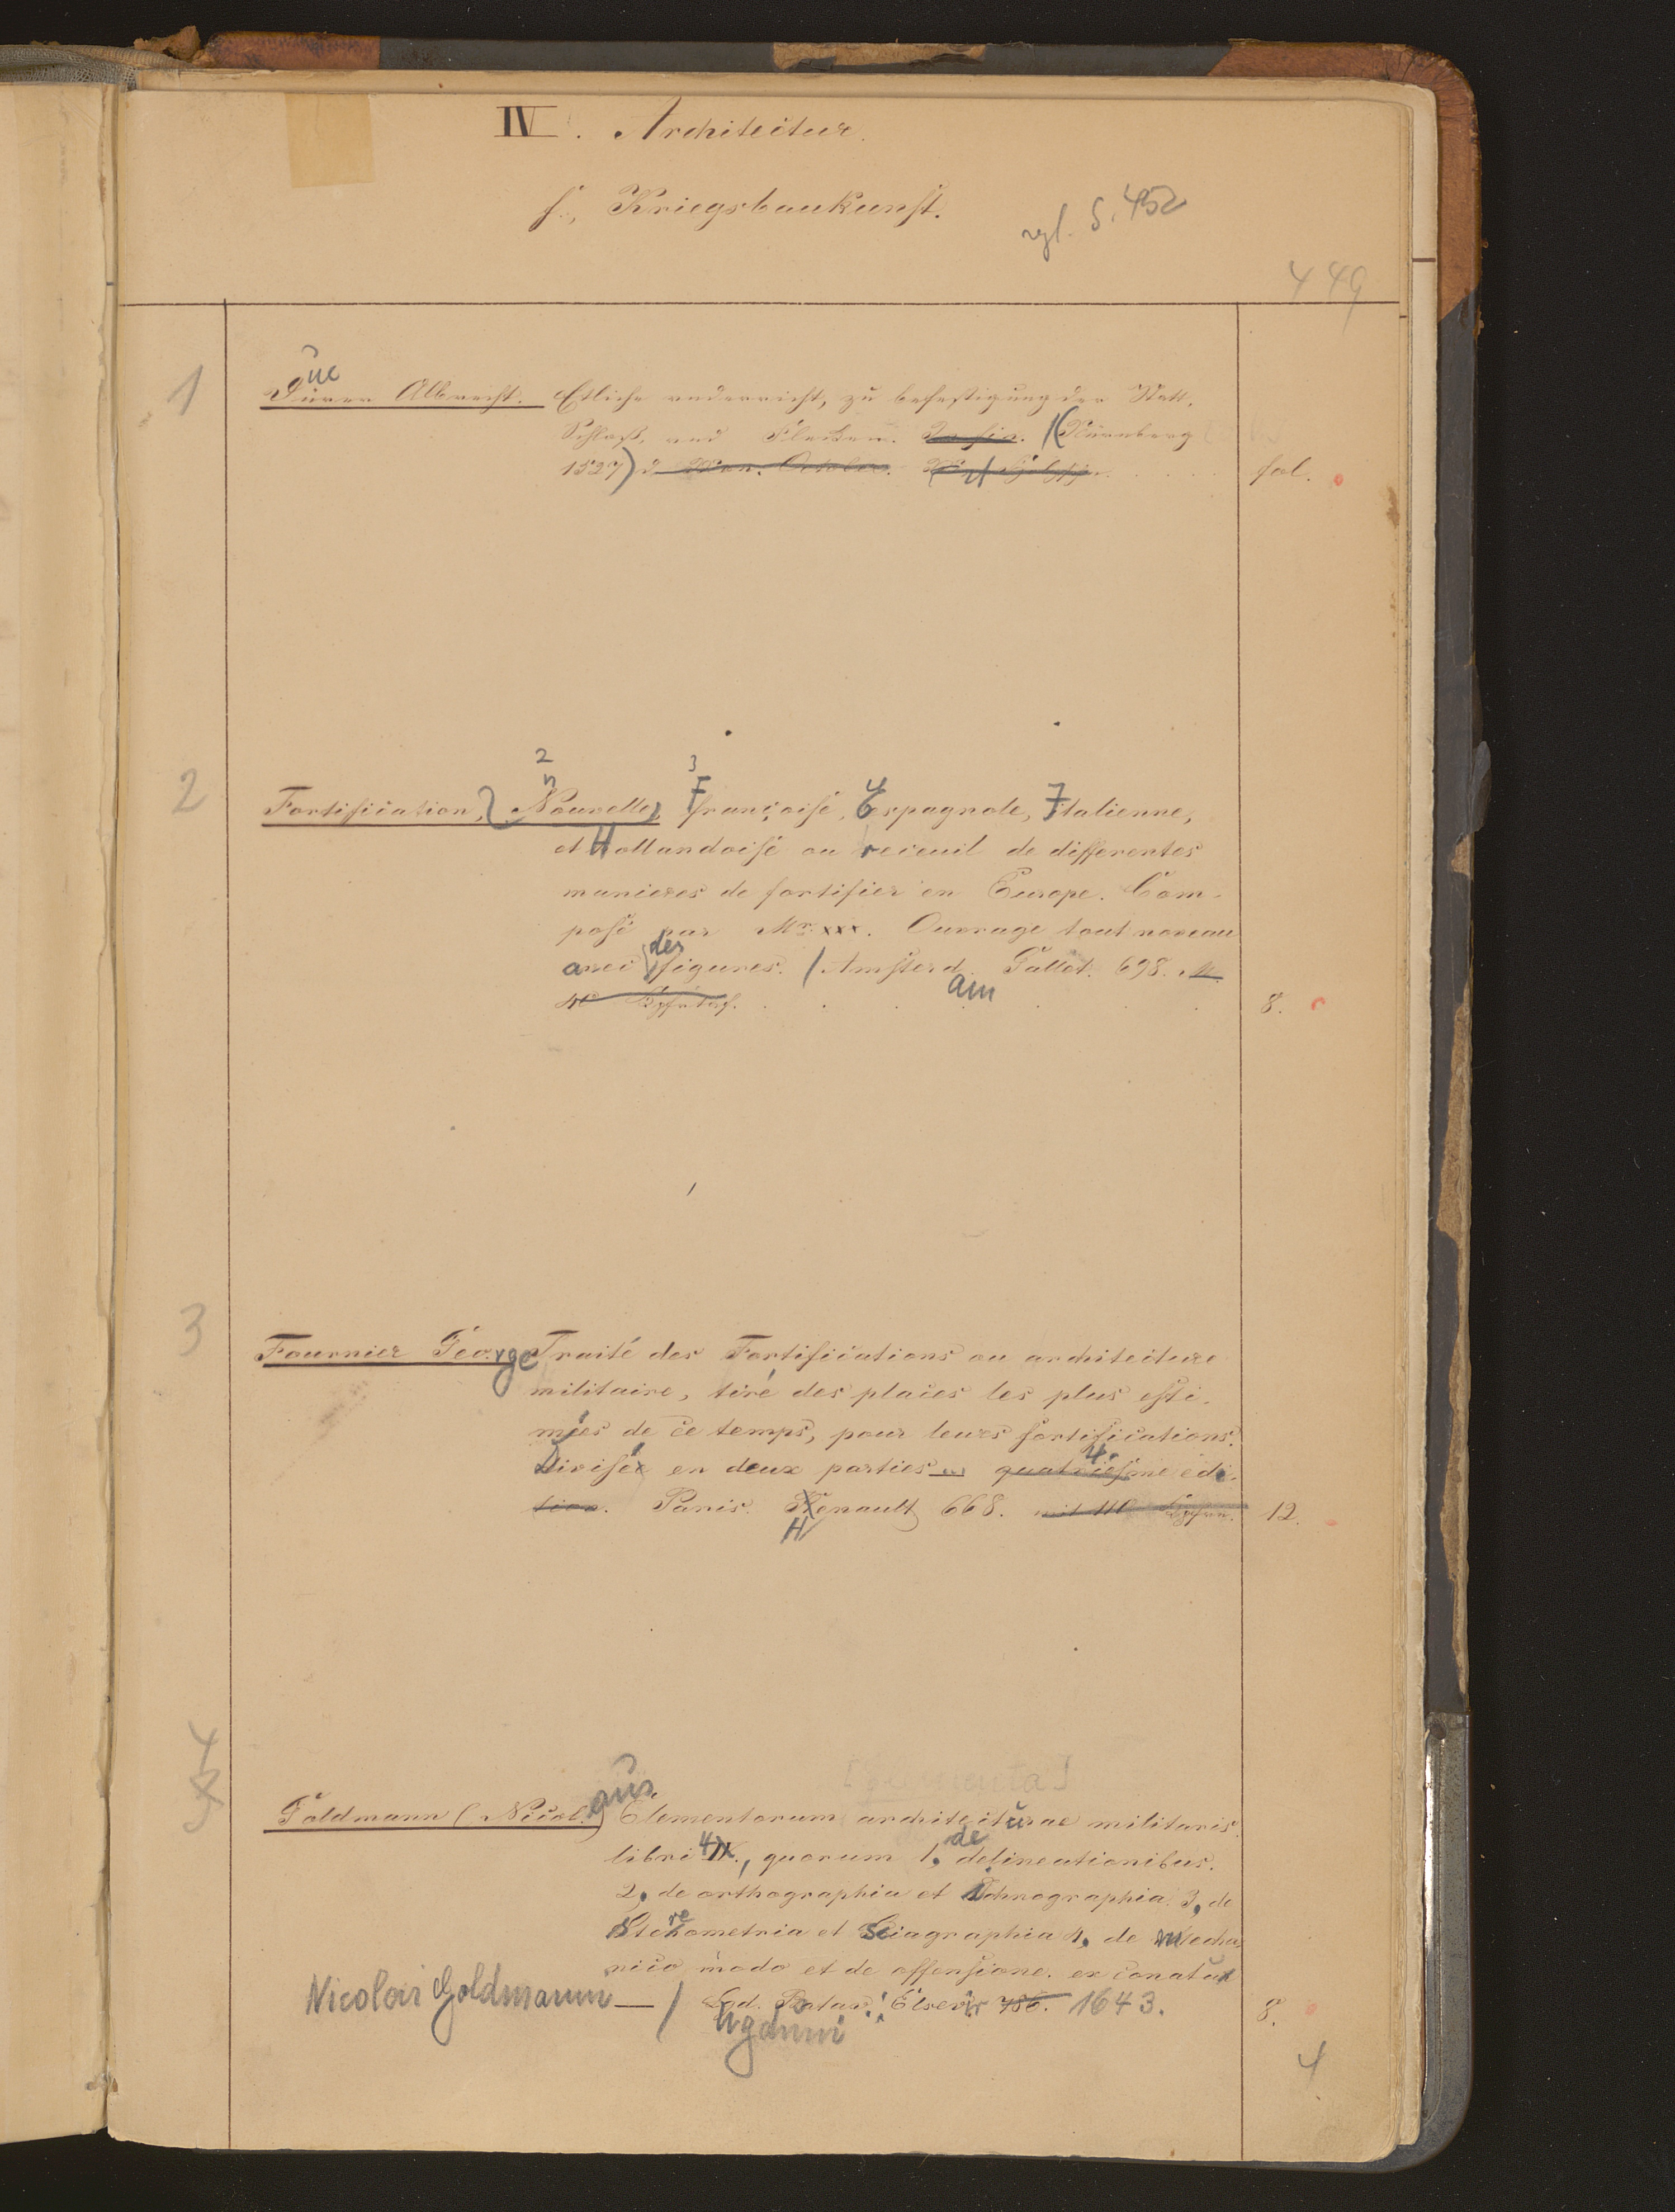 IV. Architectur.
f., Kriegsbaukunst.
vgl. S. 452
449
1
Dürer Albrecht. Etliche underricht, zu befestigung der Stett,
Schloß, und Flecken. (Nürnberg
1527)
fol.
2
2 3
Fortification, Nouvelle, Françoise, Espagnole, Italienne,
et Hollandoise ou receuil de differentes
manieres de fortifier en Europe. Com-
posé par Mr. xxx. Ouvrage tout noveau
avec des figures. / Amsterdam Gallet. 698.
8.
3
Fournier George Traité des Fortifications ou architecture
militaire, tiré des places les plus esti-
mées de ce temps, pour leurs fortifications.
Divisé en deux parties quatriesme edi-
tion. Paris. Henault 668.
12.
4
[Elementa]
Goldmann (Nicolaus) Elementorum architecturae militaris
libri 4, quorum 1. de delineationibus.
2. de orthographia et Ichnographia. 3. de
Stereometria et Sciagraphia 4. de mecha
nico modo et de offensione. ex conatu
Nicolai Goldmann — / Lugduni Batav. Elsevir 1643.
8.
4